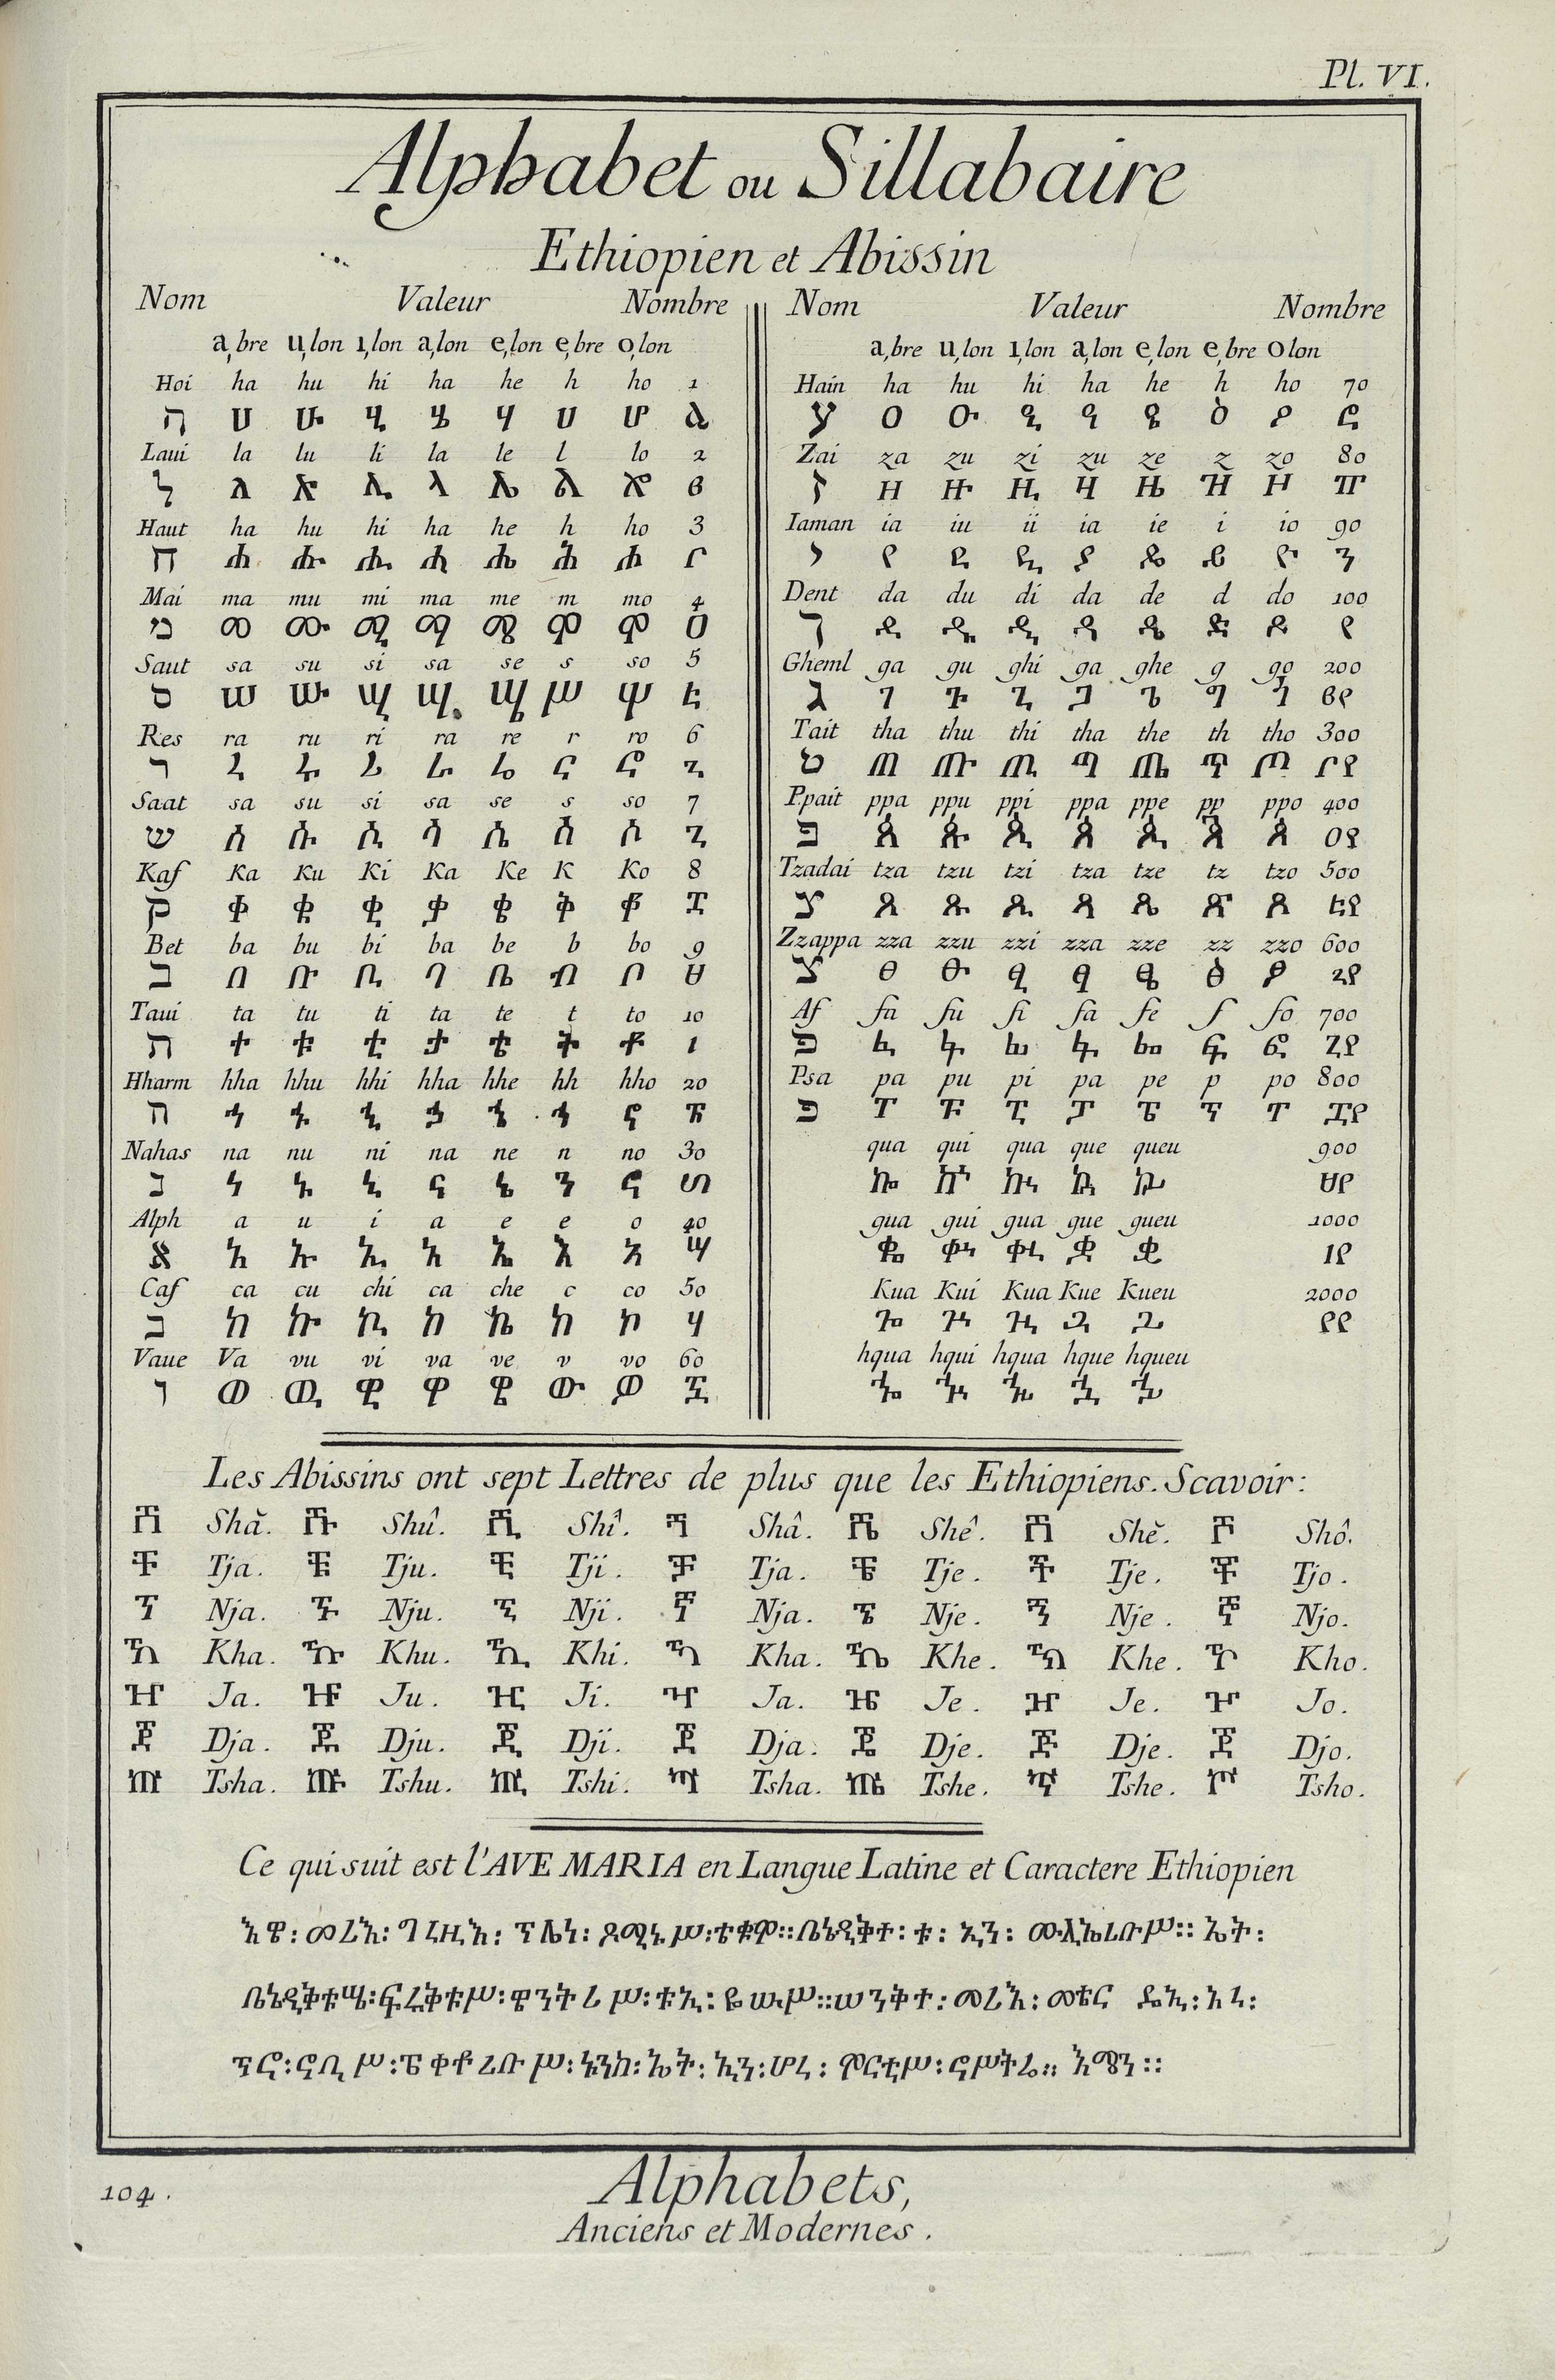 Pl. VI.
Alphabet ou Sillabaire
Ethiopien et Abissin
Nom Valeur Nombre
a,bre u,lon ı,lon a,lon e,lon e,bre o,lon
Hoi ha hu hi ha he h ho 1
ה ሀ ሁ ሂ ሃ ሄ ህ ሆ ፩
Laui la lu li la le l lo 2
ל ለ ሉ ሊ ላ ሌ ል ሎ ፪
Haut ha hu hi ha he h ho 3
ח ሐ ሑ ሒ ሓ ሔ ሕ ሖ ፫
Mai ma mu mi ma me m mo 4
מ መ ሙ ሚ ማ ሜ ም ሞ ፬
Saut sa su si sa se s so 5
ס ሠ ሡ ሢ ሣ ሤ ሥ ሦ ፭
Res ra ru ri ra re r ro 6
ר ረ ሩ ሪ ራ ሬ ር ሮ ፮
Saat sa su si sa se s so 7
ש ሰ ሱ ሲ ሳ ሴ ስ ሶ ፯
Kaf Ka Ku Ki Ka Ke K Ko 8
ק ቀ ቁ ቂ ቃ ቄ ቅ ቆ ፰
Bet ba bu bi ba be b bo 9
ב በ ቡ ቢ ባ ቤ ብ ቦ ፱
Taui ta tu ti ta te t to 10
ת ተ ቱ ቲ ታ ቴ ት ቶ ፲
Hharm hha hhu hhi hha hhe hh hho 20
ח ኀ ኁ ኂ ኃ ኄ ኅ ኆ ፳
Nahas na nu ni na ne n no 30
נ ነ ኑ ኒ ና ኔ ን ኖ ፴
Alph a u i a e e o 40
א አ ኡ ኢ ኣ ኤ እ ኦ ፵
Caf ca cu chi ca che c co 50
כ ከ ኩ ኪ ካ ኬ ክ ኮ ፶
Vaue Va vu vi va ve v vo 60
ו ወ ዉ ዊ ዋ ዌ ው ዎ ፷
Nom Valeur Nombre
a,bre u,lon ı,lon a,lon e,lon e,bre o lon
Hain ha hu hi ha he h ho 70
ע ዐ ዑ ዒ ዓ ዔ ዕ ዖ ፸
Zai za zu zi zu ze z zo 80
ז ዘ ዙ ዚ ዛ ዜ ዝ ዞ ፹
Iaman ia iu ii ia ie i io 90
י የ ዩ ዪ ያ ዬ ይ ዮ ፺
Dent da du di da de d do 100
ד ደ ዱ ዲ ዳ ዴ ድ ዶ ፻
Gheml ga gu ghi ga ghe g go 200
ג ገ ጉ ጊ ጋ ጌ ግ ጎ ፪፻
Tait tha thu thi tha the th tho 300
ט ጠ ጡ ጢ ጣ ጤ ጥ ጦ ፫፻
Ppait ppa ppu ppi ppa ppe pp ppo 400
פ ጰ ጱ ጲ ጳ ጴ ጵ ጶ ፬፻
Tzadai tza tzu tzi tza tze tz tzo 500
צ ጸ ጹ ጺ ጻ ጼ ጽ ጾ ፭፻
Zzappa zza zzu zzi zza zze zz zzo 600
צ ፀ ፁ ፂ ፃ ፄ ፅ ፆ ፮፻
Af fa fu fi fa fe f fo 700
פ ፈ ፉ ፊ ፋ ፌ ፍ ፎ ፯፻
Psa pa pu pi pa pe p po 800
פ ፐ ፑ ፒ ፓ ፔ ፕ ፖ ፰፻
qua qui qua que queu 900
ኰ ኲ ኳ ኴ ኵ ፱፻
gua gui gua gue gueu 1000
ቈ ቊ ቋ ቌ ቍ ፲፻
Kua Kui Kua Kue Kueu 2000
ጐ ጒ ጓ ጔ ጕ ፻፻
hqua hqui hqua hque hqueu
ኈ ኊ ኋ ኌ ኍ
Les Abissins ont sept Lettres de plus que les Ethiopiens. Scavoir:
ሸ Shă. ሹ Shû. ሺ Shî. ሻ Shâ. ሼ Shê. ሽ Shĕ. ሾ Shô.
ቸ Tja. ቹ Tju. ቺ Tji. ቻ Tja. ቼ Tje. ች Tje. ቾ Tjo.
ኘ Nja. ኙ Nju. ኚ Nji. ኛ Nja. ኜ Nje. ኝ Nje. ኞ Njo.
ኸ Kha. ኹ Khu. ኺ Khi. ኻ Kha. ኼ Khe. ኽ Khe. ኾ Kho.
ዠ Ja. ዡ Ju. ዢ Ji. ዣ Ja. ዤ Je. ዥ Je. ዦ Jo.
ጀ Dja. ጁ Dju. ጂ Dji. ጃ Dja. ጄ Dje. ጅ Dje. ጆ Djo.
ጨ Tsha. ጩ Tshu. ጪ Tshi. ጫ Tsha. ጬ Tshe. ጭ Tshe. ጮ Tsho.
Ce qui suit est l'AVE MARIA en Langue Latine et Caractere Ethiopien
አዌ፡ መሪአ፡ ግረዚአ፡ ፕሌነ፡ ዶሚኑሥ፡ ቴቁም፡፡ ቤኔዲቅተ፡ ቱ፡ ኢን፡ ሙሊኤሪቡሥ፡፡ ኤት፡
ቤኔዲቅቱሥ፡ ፍሩቅቱሥ፡ ዌንትሪሥ፡ ቱኢ፡ ዬሡሥ፡፡ ሠንቅተ፡ መሪአ፡ መቴር ዴኢ፡ ኦረ፡
ፕሮ፡ ኖቢሥ፡ ፔቀቶሪቡሥ፡ ኑንክ፡ ኤት፡ ኢን፡ ሆረ፡ ሞርቲሥ፡ ኖሥትሬ፡፡ አሜን፡፡
104.
Alphabets,
Anciens et Modernes.